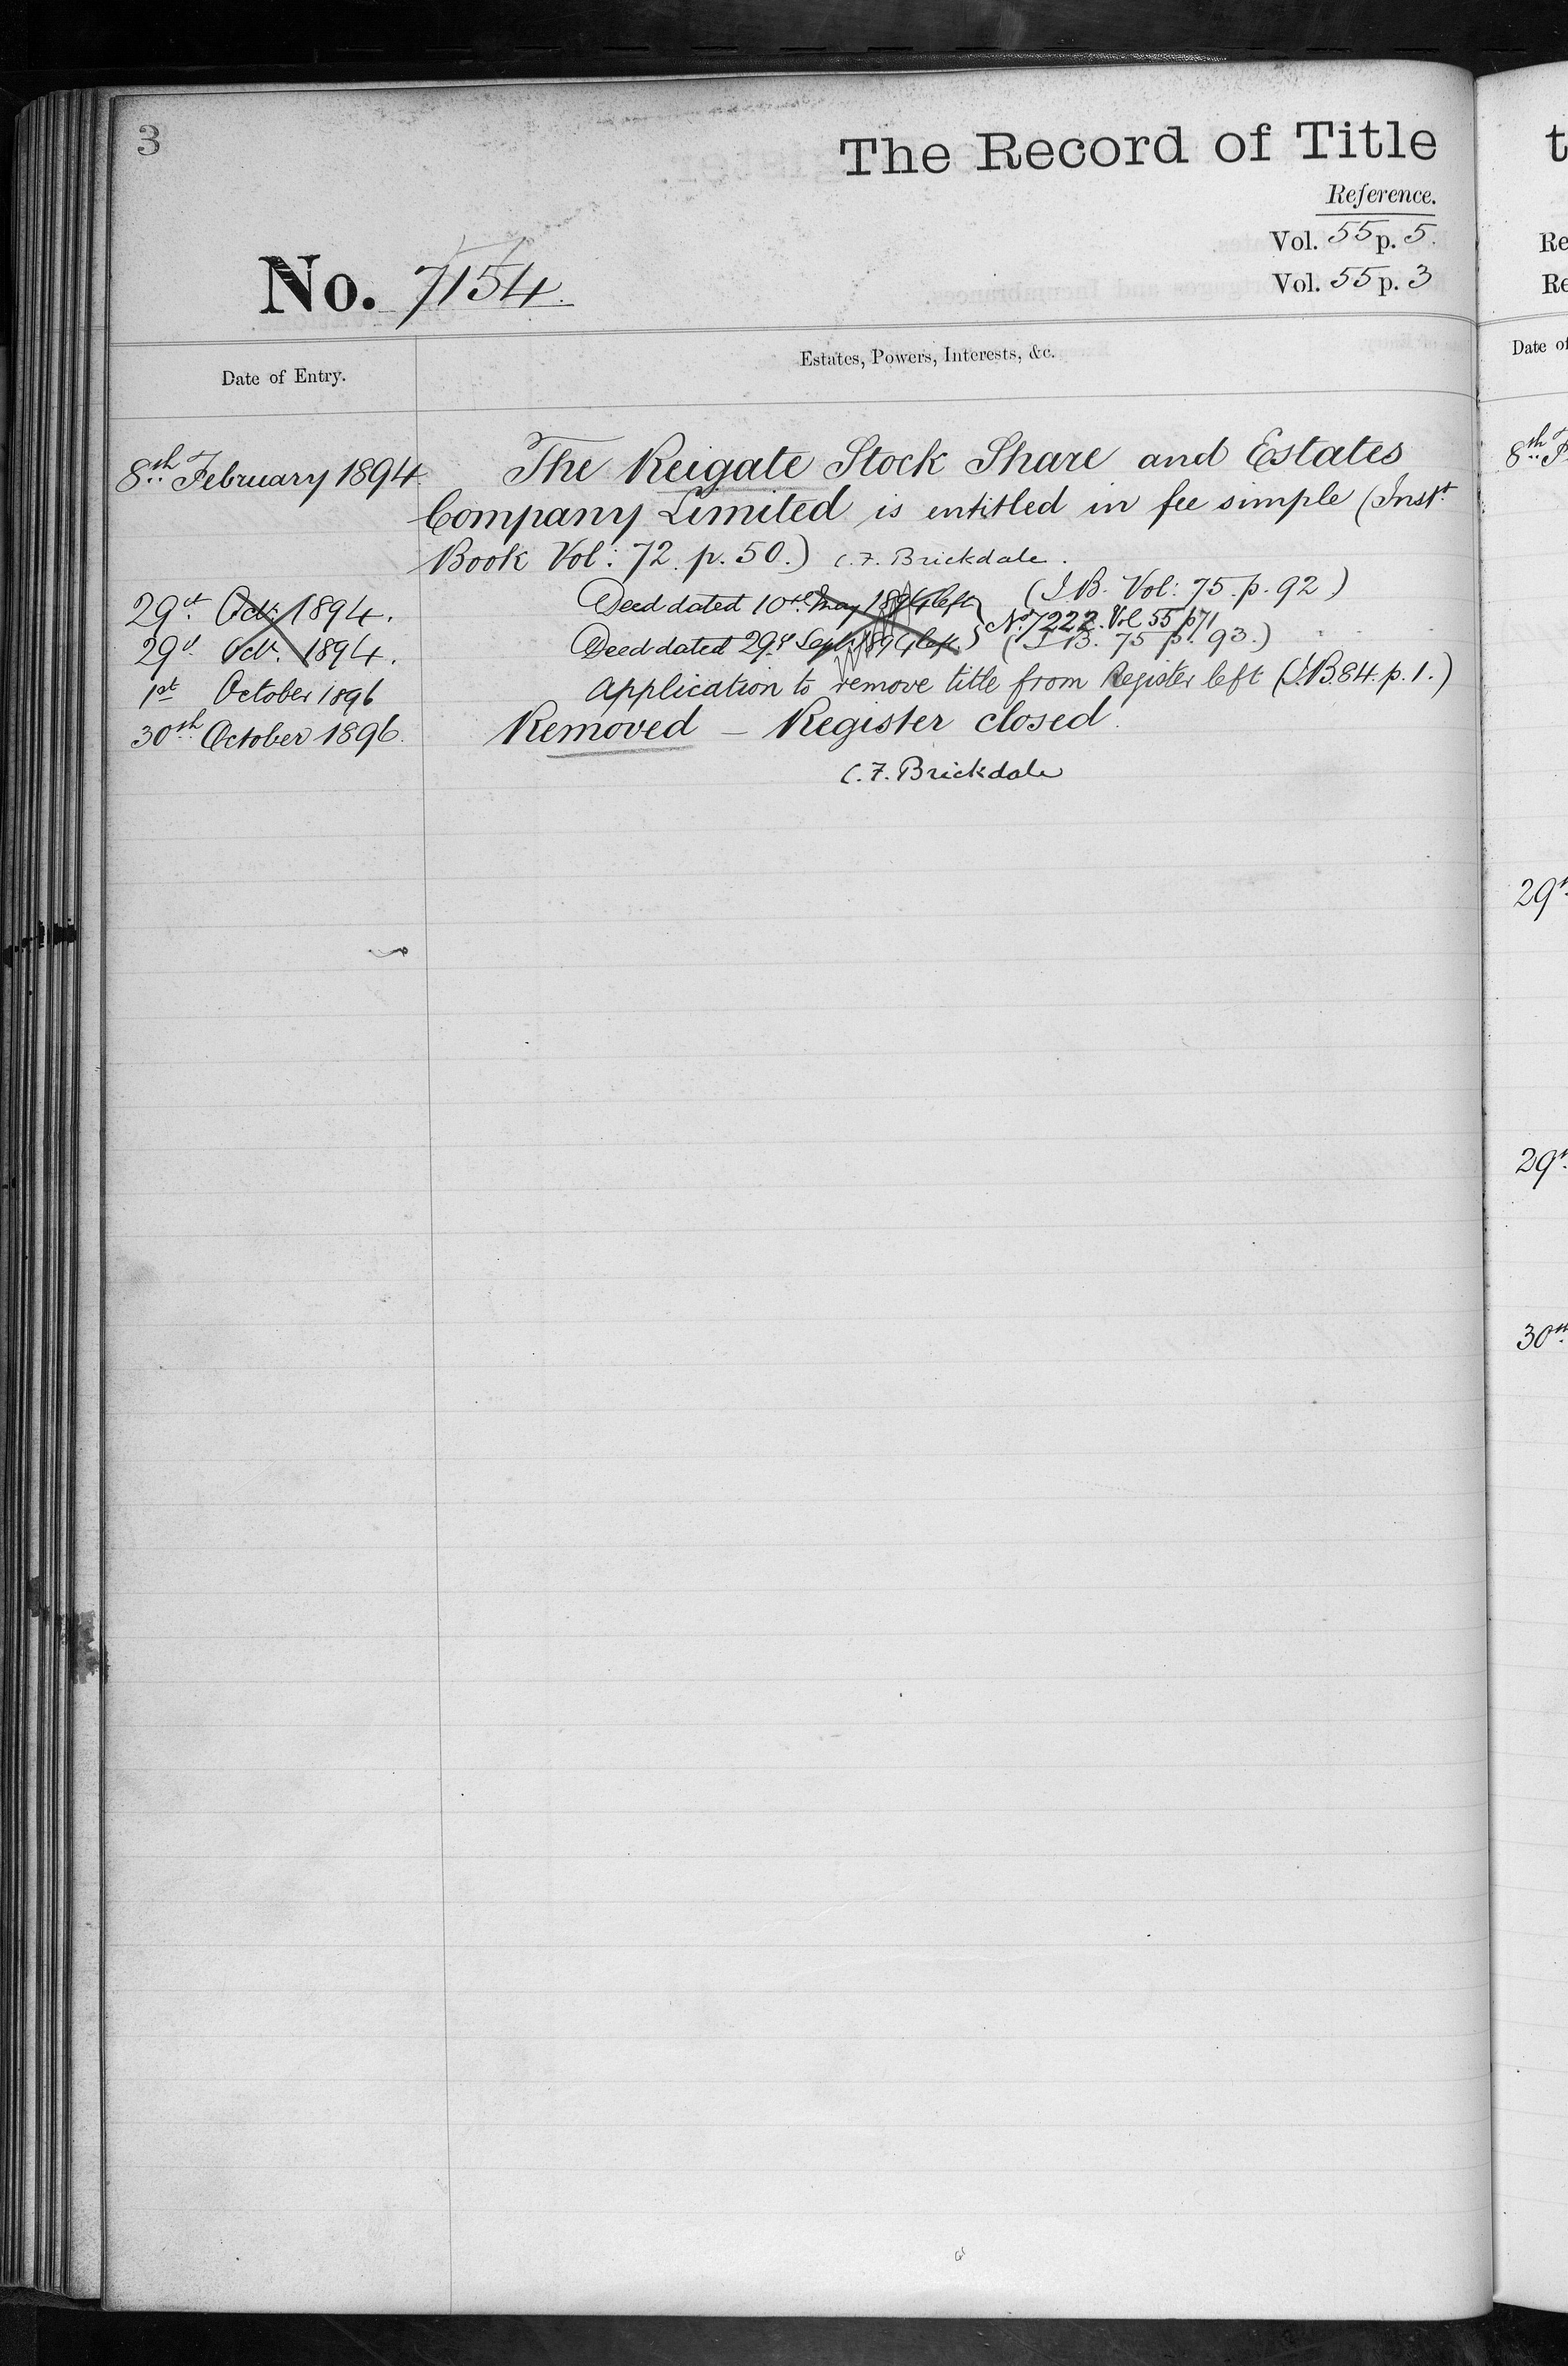 3
The Record of Title
Reference.
Vol. 55 p. 5.
Vol. 55 p. 3
No. 7154.
Date of Entry.
Estates, Powers, Interests, &c.
8th February 1894
The Reigate Stock Share and Estates
Company Limited is entitled in fee simple (Inst
Book Vol: 72. p. 50.) C. F. Brickdale.
29th Oct: 1894. Deed dated 10th May 1894 left (I.B. Vol: 75. p. 92)
No. 7222. Vol 55 p 71
29th Oct. 1894. Deed dated 29th Sept. 1894 left. (I B. 75 p. 93.)
1st October 1896 Application to remove title from Register left (I.B. 84. p. 1.)
30th October 1896. Removed – Register closed.
C. F. Brickdale
t
Re
Re
Date of
8th F
29th
29th
30th